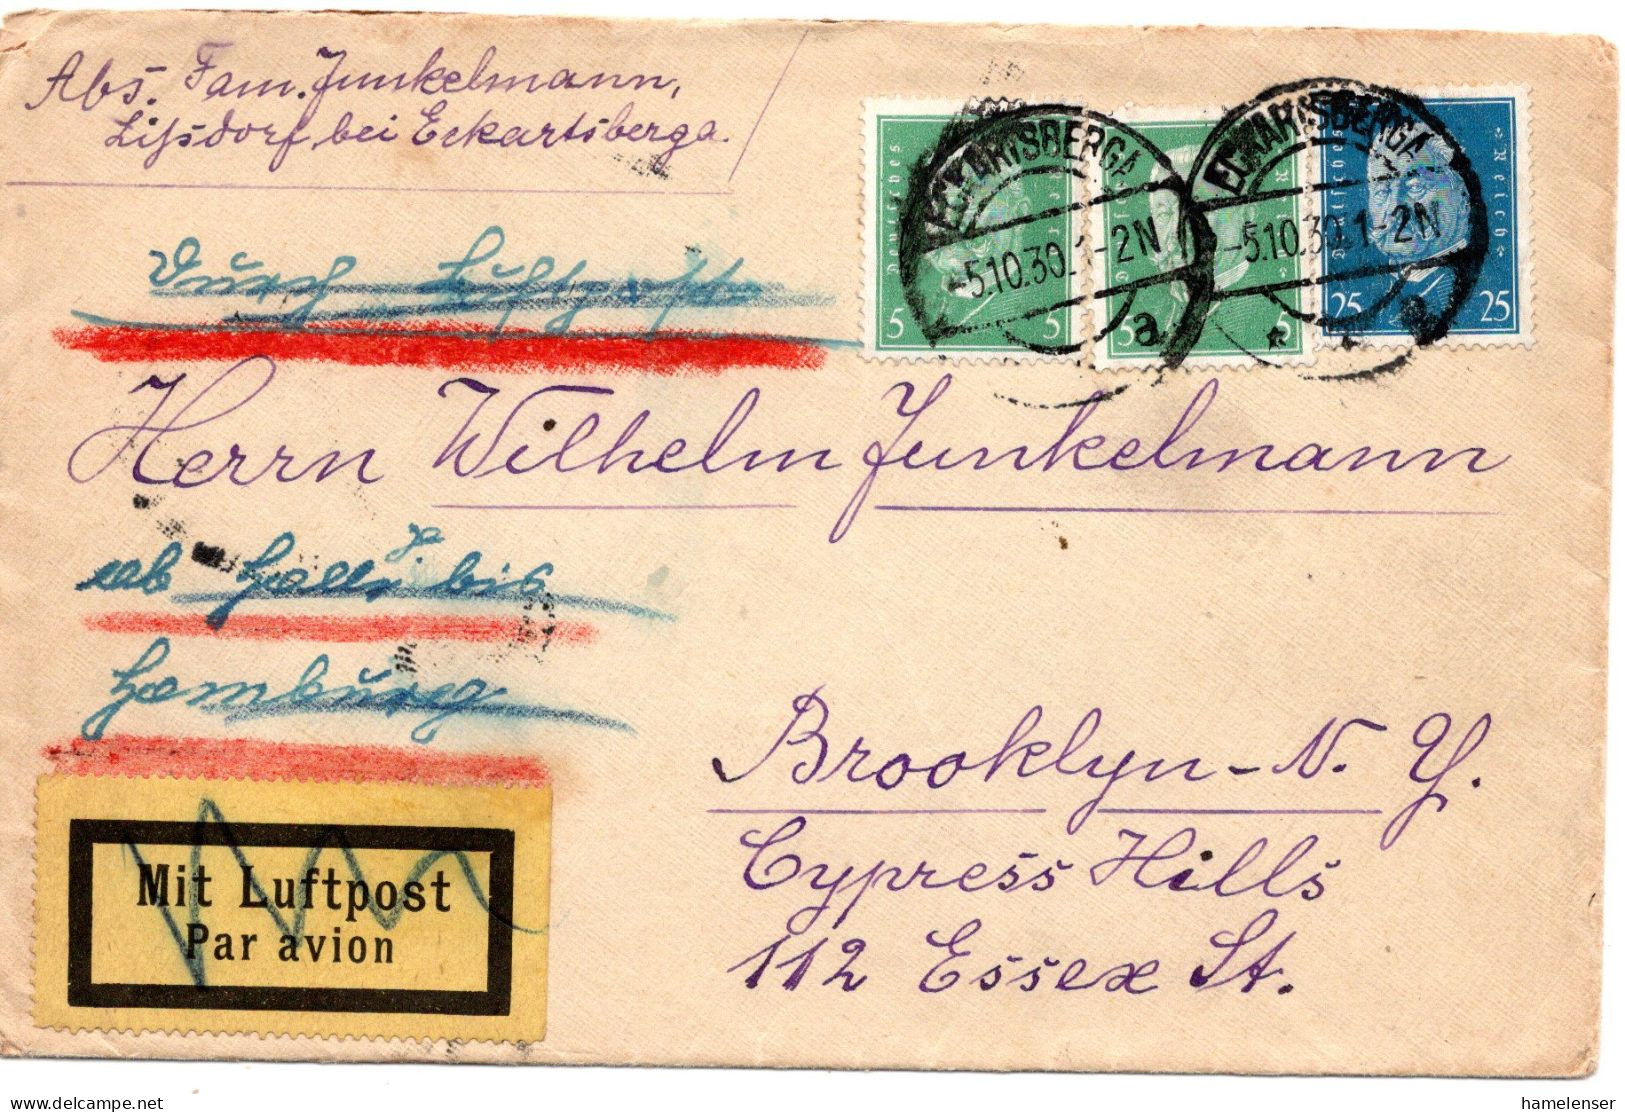 Abs. Fam. Junkelmann,
Lißdorf bei Eckartsberga.
Deutsches Reich
5 5
Deutsches Reich
5 5
Deutsches Reich
25 25
ECKARTSBERGA
-5.10.30.1-2N
a
ECKARTSBERGA
-5.10.30.1-2N
a
Durch Luftpost
Herrn Wilhelm Junkelmann
ab Halle bis
Hamburg
Brooklyn - N. Y.
Cypress Hills
112 Essex St.
Mit Luftpost
Par avion
www.delcampe.net
hamelenser